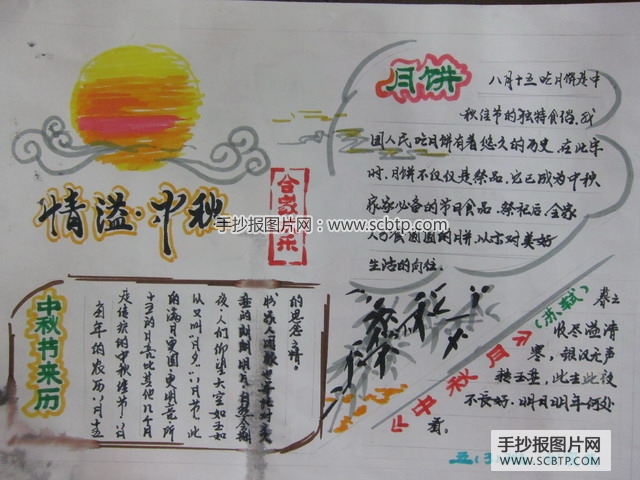 情溢·中秋
合家 乐
月饼
八月十五吃月饼是中
秋佳节的独特食俗,我
国人民吃月饼有着悠久的历史,在此
时,月饼不仅仅是祭品,它已成为中秋
家家必备的节日食品,祭祀后,全家
人分食圆圆的月饼,以示对美好
生活的向往.
手抄报图片网:www.scbtp.com
中秋节来历
每年的农历八月十五
是传统的中秋佳节,八月
十五的月亮比其他几个月
的满月更圆更明亮,所
以又叫“月夕”“八月节”,此
夜,人们仰望天空如玉如
盘的朗朗明月,自然会期
盼家人团聚
的思念之情。
《中秋月》
(苏轼)
暮云
收尽溢清
寒,银汉无声
转玉盘,此生此夜
不长好,明月明年何处
看.
五(3
手抄报图片网
WWW.SCBTP.COM